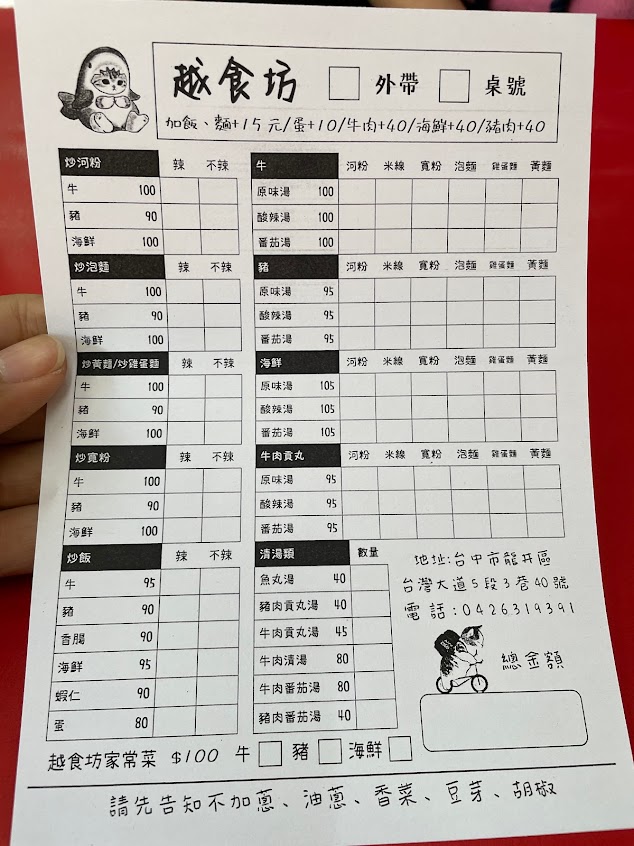 越食坊 外帶 桌號
加飯、麵+15元/蛋+10/牛肉+40/海鮮+40/豬肉+40
炒河粉 辣 不辣
牛 100
豬 90
海鮮 100
炒泡麵 辣 不辣
牛 100
豬 90
海鮮 100
炒黃麵/炒雞蛋麵 辣 不辣
牛 100
豬 90
海鮮 100
炒寬粉 辣 不辣
牛 100
豬 90
海鮮 100
炒飯 辣 不辣
牛 95
豬 90
香腸 90
海鮮 95
蝦仁 90
蛋 80
牛 河粉 米線 寬粉 泡麵 雞蛋麵 黃麵
原味湯 100
酸辣湯 100
番茄湯 100
豬 河粉 米線 寬粉 泡麵 雞蛋麵 黃麵
原味湯 95
酸辣湯 95
番茄湯 95
海鮮 河粉 米線 寬粉 泡麵 雞蛋麵 黃麵
原味湯 105
酸辣湯 105
番茄湯 105
牛肉貢丸 河粉 米線 寬粉 泡麵 雞蛋麵 黃麵
原味湯 95
酸辣湯 95
番茄湯 95
清湯類 數量
魚丸湯 40
豬肉貢丸湯 40
牛肉貢丸湯 45
牛肉清湯 80
牛肉番茄湯 80
豬肉番茄湯 40
地址:台中市龍井區
台灣大道5段3巷40號
電話:0426319391
總金額
越食坊家常菜 $100 牛 豬 海鮮
請先告知不加蔥、油蔥、香菜、豆芽、胡椒